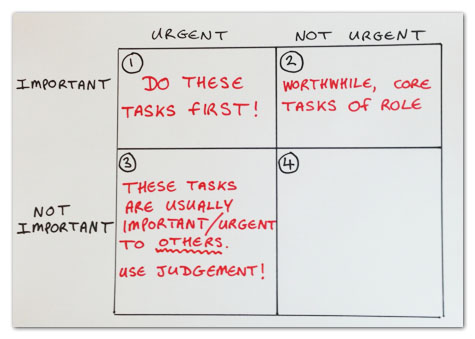 URGENT
NOT URGENT
IMPORTANT
1
DO THESE
TASKS FIRST!
2
WORTHWHILE, CORE
TASKS OF ROLE
NOT
IMPORTANT
3
THESE TASKS
ARE USUALLY
IMPORTANT/URGENT
TO OTHERS.
USE JUDGEMENT!
4